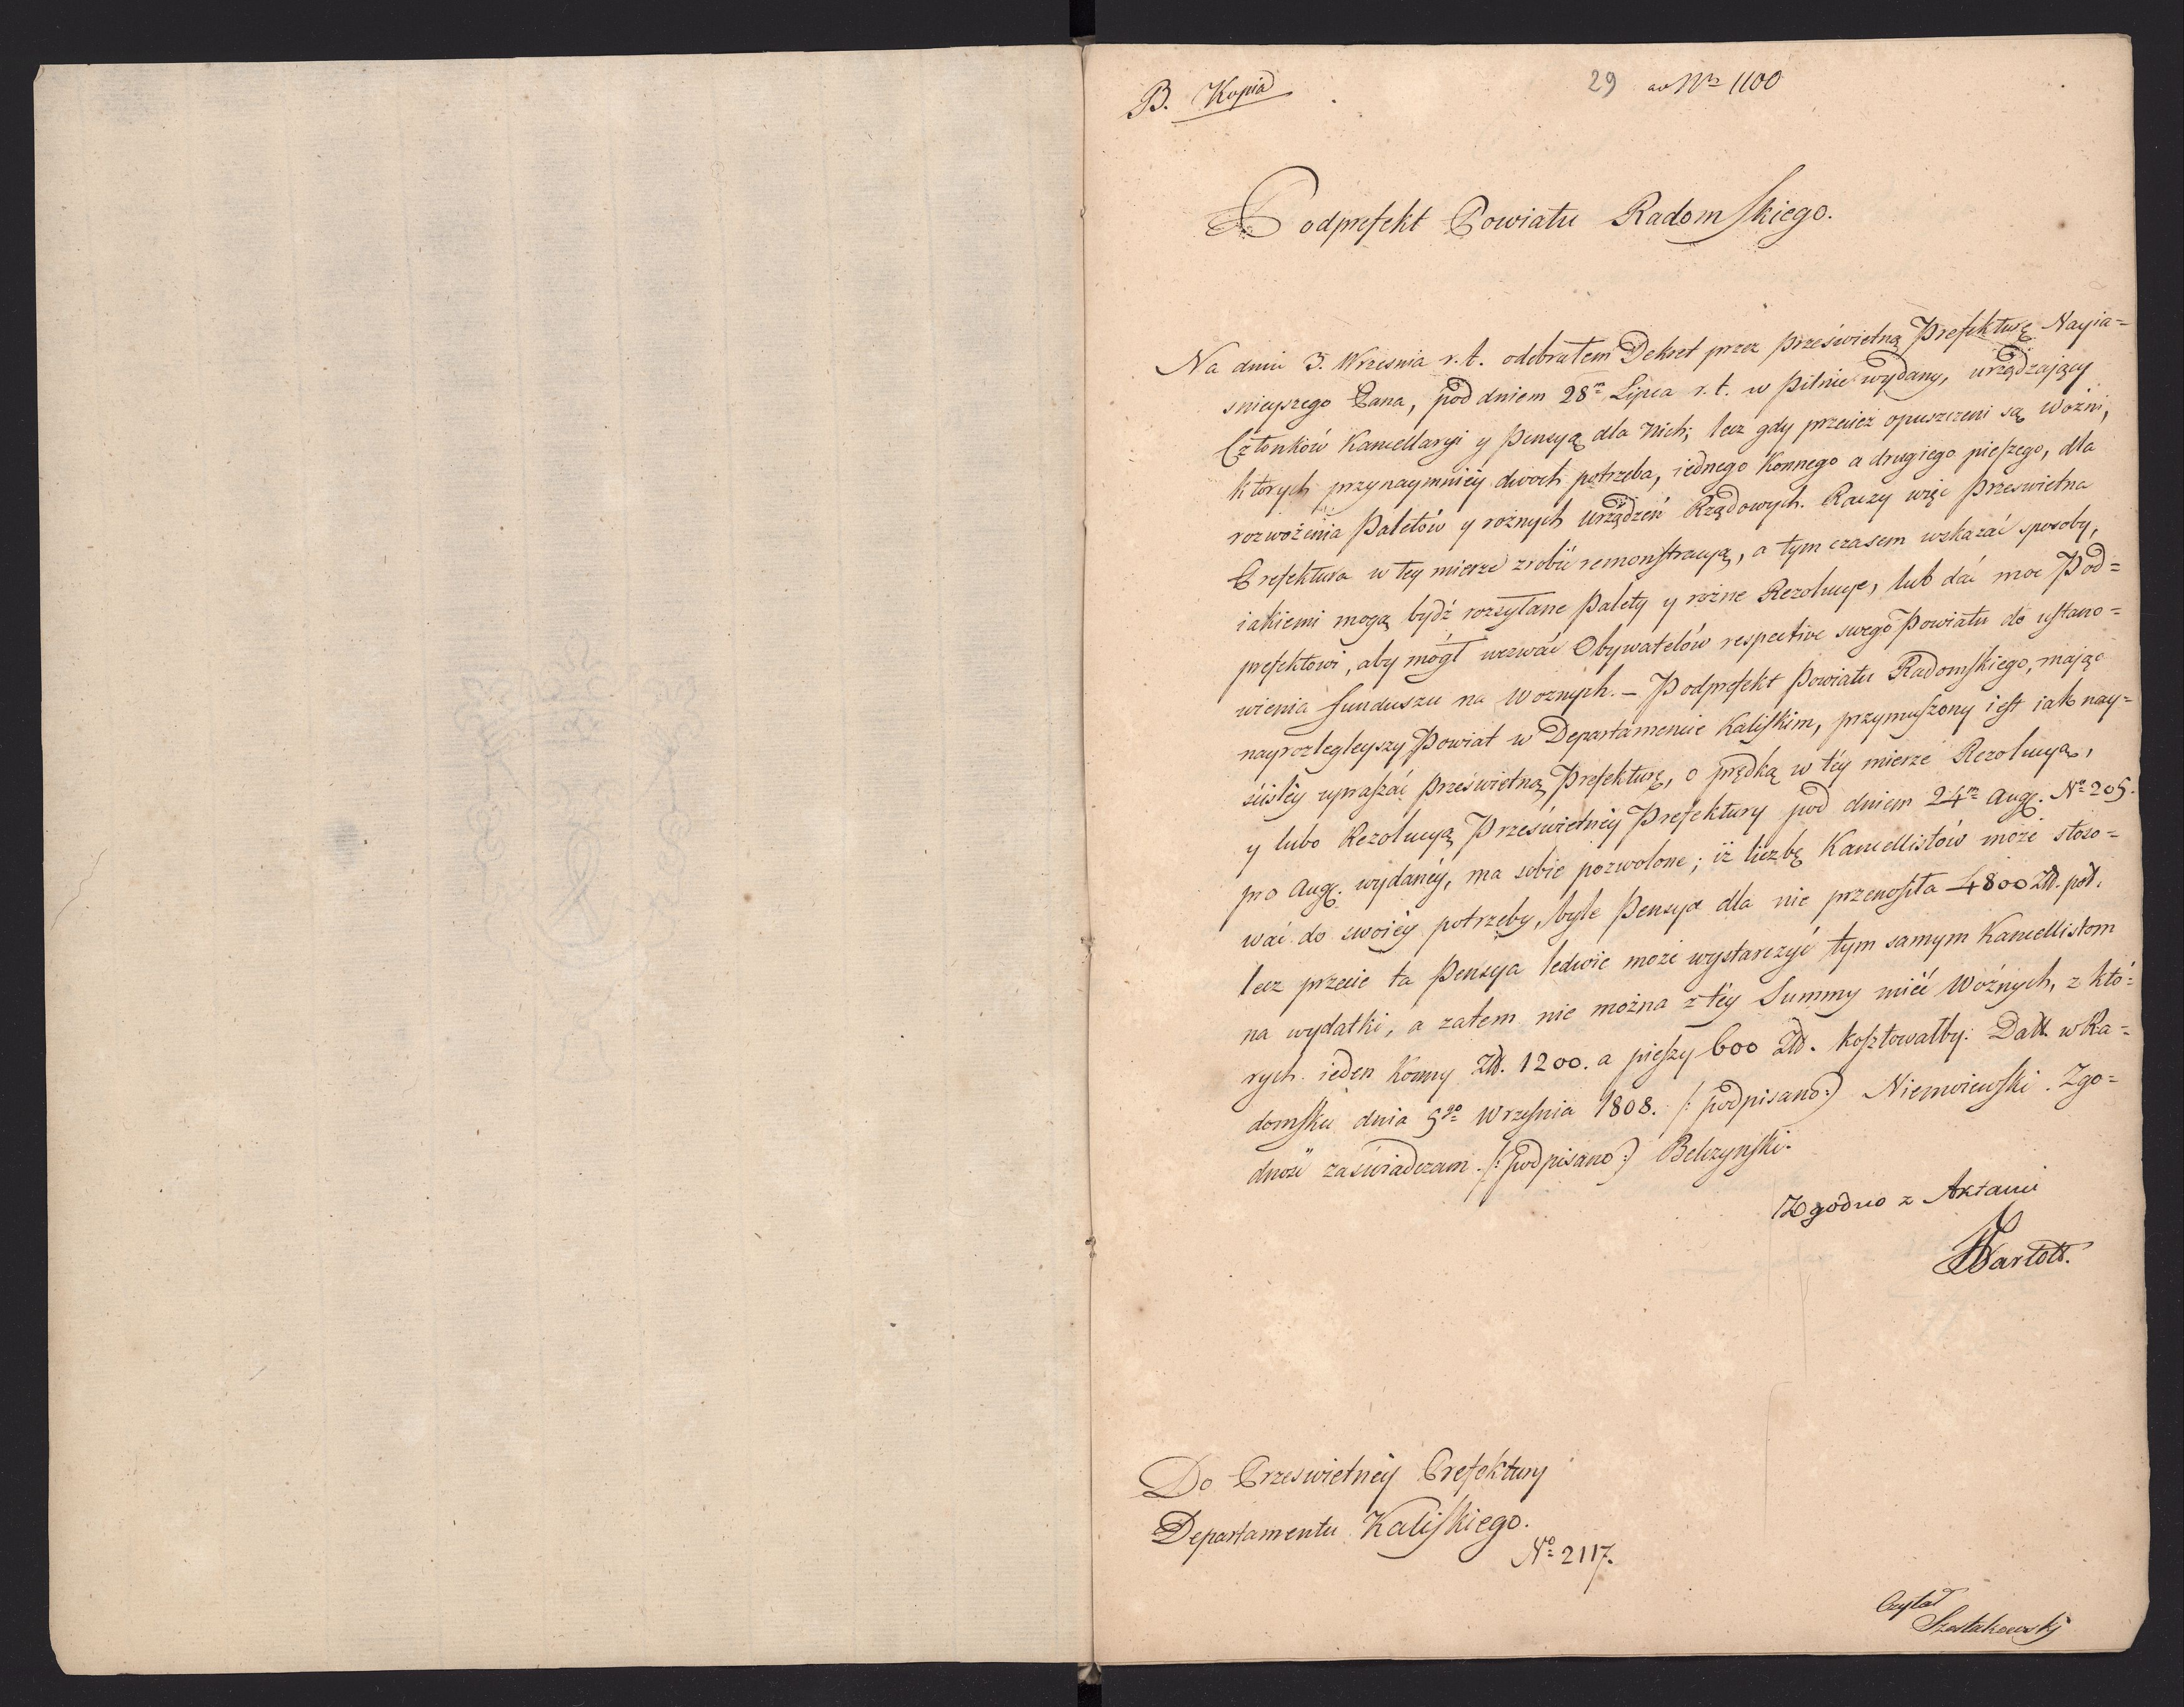 B. Kopia
29 ad Nro 1100
Podprefekt Powiatu Radomskiego.
Na dniu 3. Wrzesnia r. t. odebrałem Dekret przez Prześwietną Prefekturę Nayia=
snieyszego Pana, pod dniem 28m Lipca r. t. w Pilnie wydany, urządzaiący
Członków Kancellaryi y Pensyą dla nich; lecz gdy przecież opuszczeni są wozni,
ktorych przynaymniéy dwoch potrzeba, iednego Konnego a drugiego pieszego, dla
rozwożenia Paletów y rożnych Urządzeń Rządowych. Raczy więc Przeswietna
Prefektura w tey mierze zrobić remonstracyą, a tym czasem wskazać sposoby,
iakiemi mogą bydź rozsyłane Palety y rożne Rezolucye, lub dać moc Pod=
prefektowi, aby mógł wezwać Obywatelów respective swego Powiatu do ustano=
wienia funduszu na Woznych. – Podprefekt Powiatu Radomskiego, maiąc
nayrozlegleyszy Powiat w Departamencie Kaliskim, przymuszony iest iak nay=
ściśléy upraszać Prześwietną Prefekturę, o prędką w téy mierze Rezolucyą,
y lubo Rezolucyą Prześwietnéy Prefektury pod dniem 24m Aug. No 205.
pro Aug. wydanéy, ma sobie pozwolone; iż liczbę Kancellistów może stoso=
wać do swoiéy potrzeby, byle Pensya dla nie przenosiła 4800 Zł. pol.
lecz przecie ta Pensya ledwie może wystarczyć tym samym Kancellistom
na wydatki, a zatem nie można z téy Summy mieć Woźnych, z któ=
rych ieden Konny Zł. 1200. a pieszy 600 Zł. kosztowałby. Datt. w Ra=
domsku dnia 5go Września 1808. /: podpisano :/ Niemoiewski. Zgo=
dność zaświadczam. /: podpisano :/ Belczynski.
Zgodno z Aktami
Do Przeswietnéy Prefektury
Departamentu Kaliskiego.
No 2117.
Czytał
Szostakowski